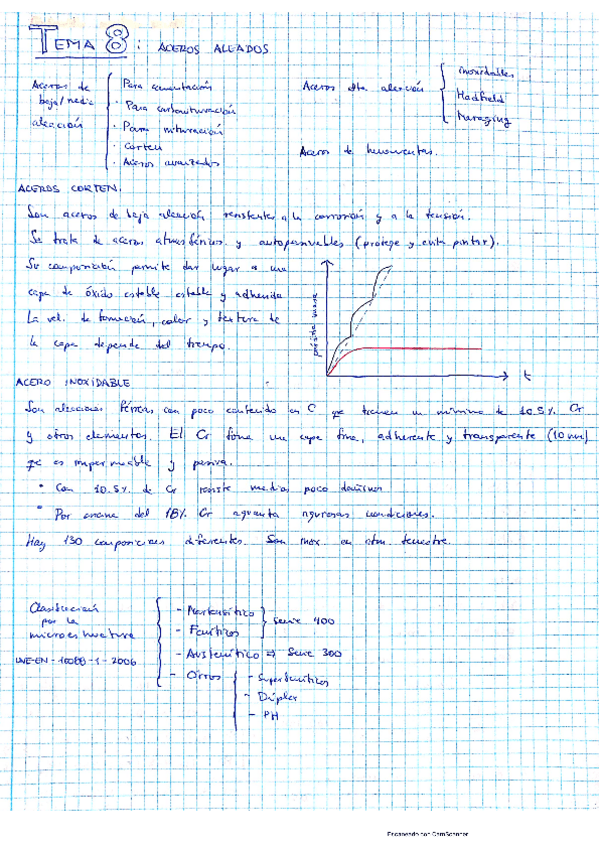 TEMA 8: ACEROS ALEADOS
Aceros de baja/media aleación
· Para cementación
· Para carbonituración
· Para nitruración
· Corten
· Aceros avanzados
Aceros alta aleación
Inoxidables
Hadfield
Maraging
Aceros de herramientas.
ACEROS CORTEN:
Son aceros de baja aleación resistentes a la corrosión y a la tensión.
Se trata de aceros atmosféricos y autopasivables (protege y evita pintar).
Su composición permite dar lugar a una
capa de óxido estable estable y adherida
La vel. de formación, color y textura de
la capa depende del tiempo.
pérdida masa
t
ACERO INOXIDABLE
Son aleaciones férreas con poco contenido en C que tienen un mínimo de 10.5% Cr
y otros elementos. El Cr forma una capa fina, adherente y transparente (10 nm)
que es impermeable y pasiva.
· Con 10.5% de Cr resiste medios poco dañinos
· Por encima del 18% Cr aguanta rigurosas condiciones.
Hay 130 composiciones diferentes. Son inox. en atm. terrestre.
Clasificación por la microestructura
UNE-EN-10088-1-2006
- Martensítico
- Ferríticos
Serie 400
- Austenítico ⇒ Serie 300
- Otros
- Superferríticos
- Dúplex
- PH
Escaneado con CamScanner